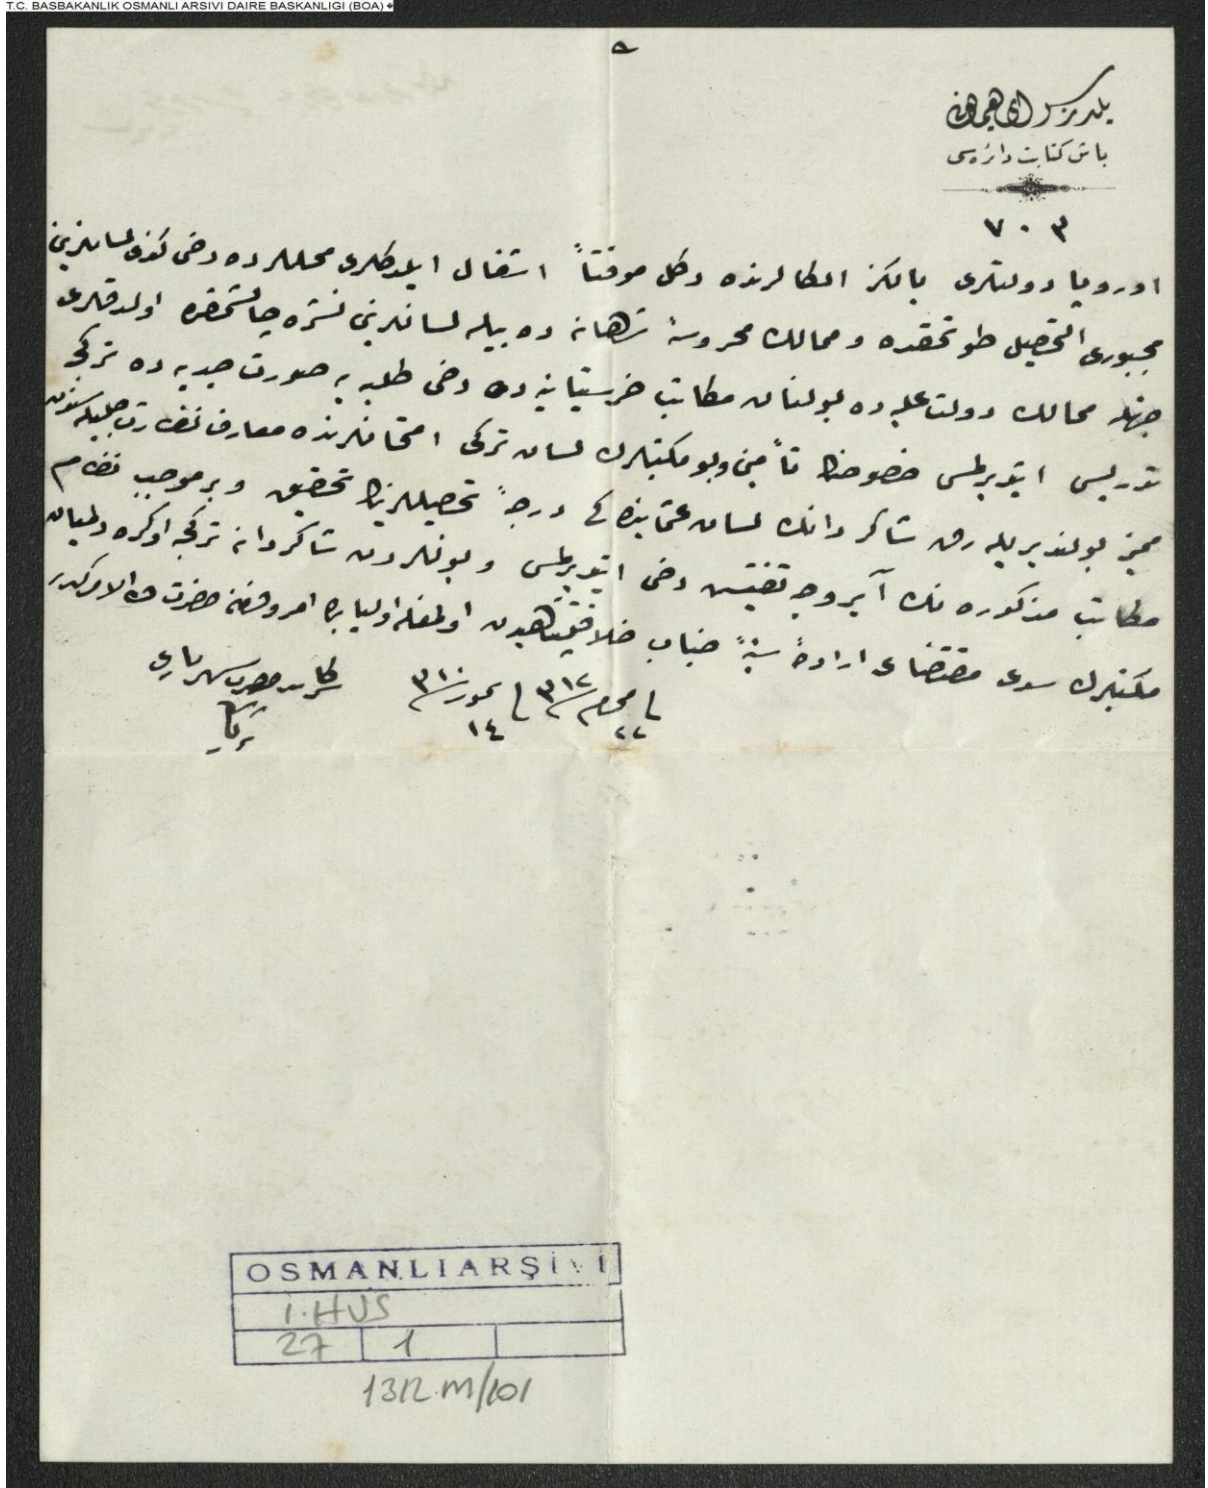 T.C. BASBAKANLIK OSMANLI ARSIVI DAIRE BASKANLIGI (BOA) �
یلدیز سرای همایونی
باش کتابت دائره‌سی
٧٠٣
اوروپا دولتلری یالکز املاکلرنده دکل موقتاً اشغال ایلدکلری محللرده دخی کندی لسانلرینی
مجبوری التحصیل طوتمقده و ممالك محروسۀ شاهانه ده بیله لسانلرینی نشره چالشمقده اولدقلری
جهتله ممالك دولت علیه ده بولنان مکاتب خرستیانیه ده دخی طلبه یه صورت جدیه ده ترکجه
تدریس ایتدیرلمسی خصوصنك تأمین و بو مکتبلرك لسان ترکی امتحانلرنده معارف نظارت جلیله سندن
ممیز بولندیریله رق شاکردانك لسان عثمانیده کی درجۀ تحصیللرینك تحقیق و بر موجب نظام
مکاتب مذکوره نك آیروجه تفتیش دخی ایتدیرلمسی و بونلردن شاکردانه ترکجه اوکره دلمیان
مکتبلرك سدی مقتضای ارادۀ سنیۀ جناب خلافتپناهیدن اولمغله اولبابده امر و فرمان حضرت ولی الامرکدر
فی ٢٢ محرم ٣١٢ فی ١٤ تموز ٣١٠
سرکاتب حضرت شهریاری
ثریا
OSMANLI ARŞİVİ
İ.HUS
27 1
1312.M/101